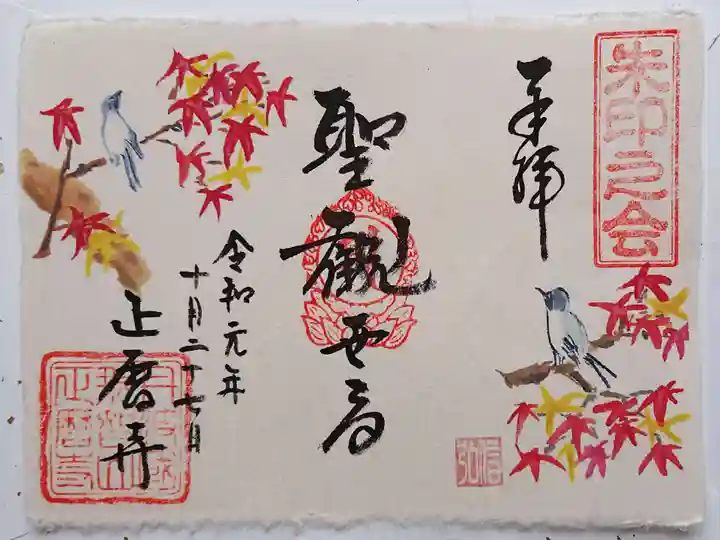 朱印之会
奉拝
聖観世音
令和元年
十月二十七日
正暦寺
正暦寺